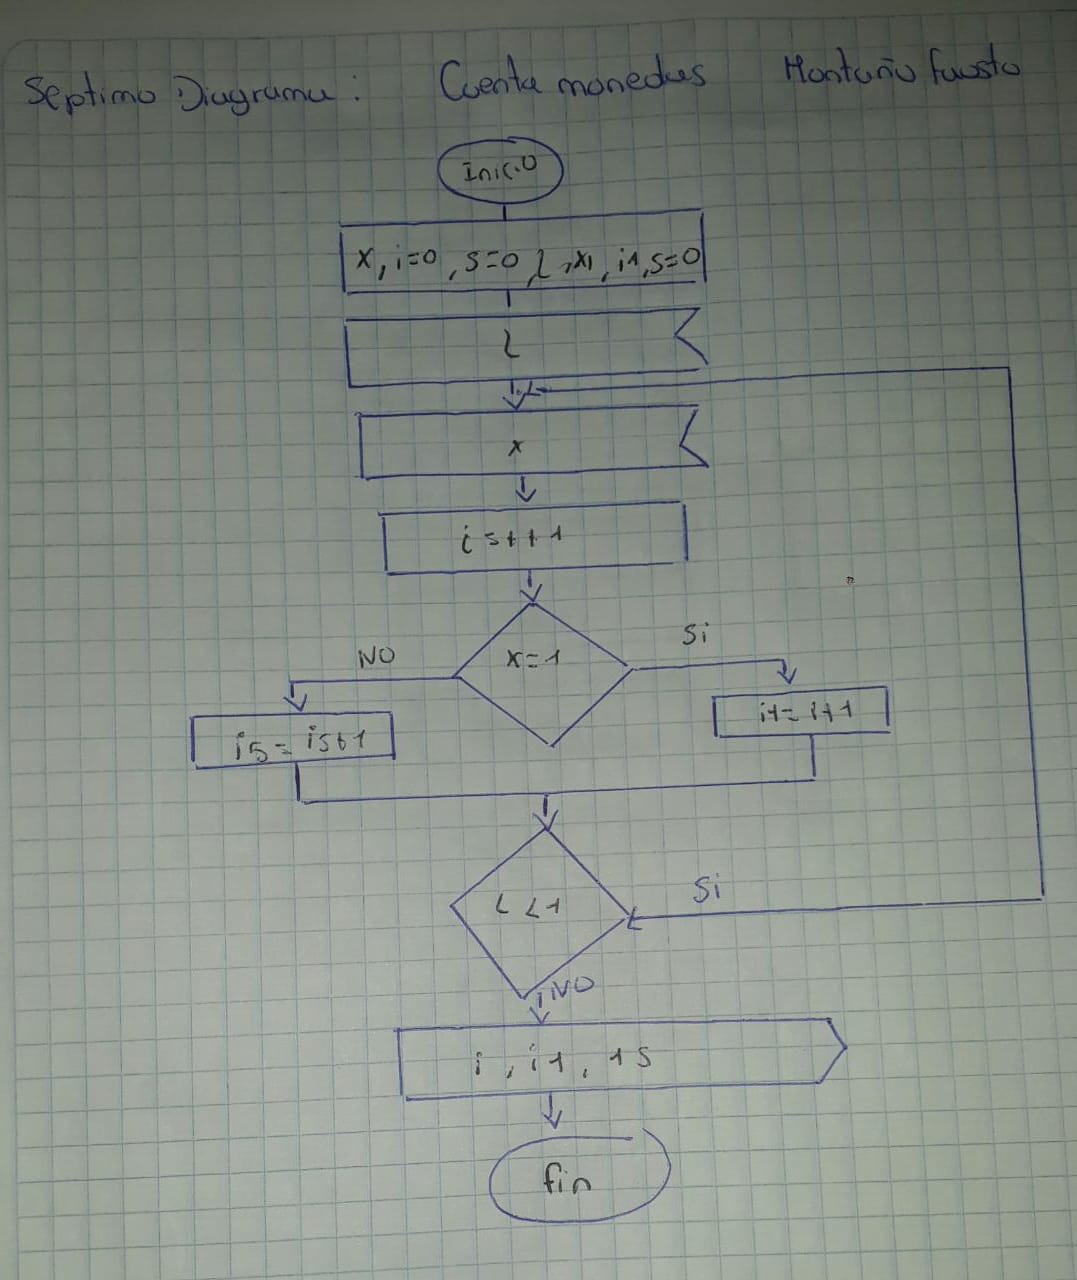 Septimo Diagrama: Cuenta monedas Montaño Fausto
Inicio
x, i=0, s=0, l, x1, i1, s=0
l
x
x=1
NO
Si
i5 = i5+1
i1= i+1
L<1
Si
NO
i, i1, 15
fin